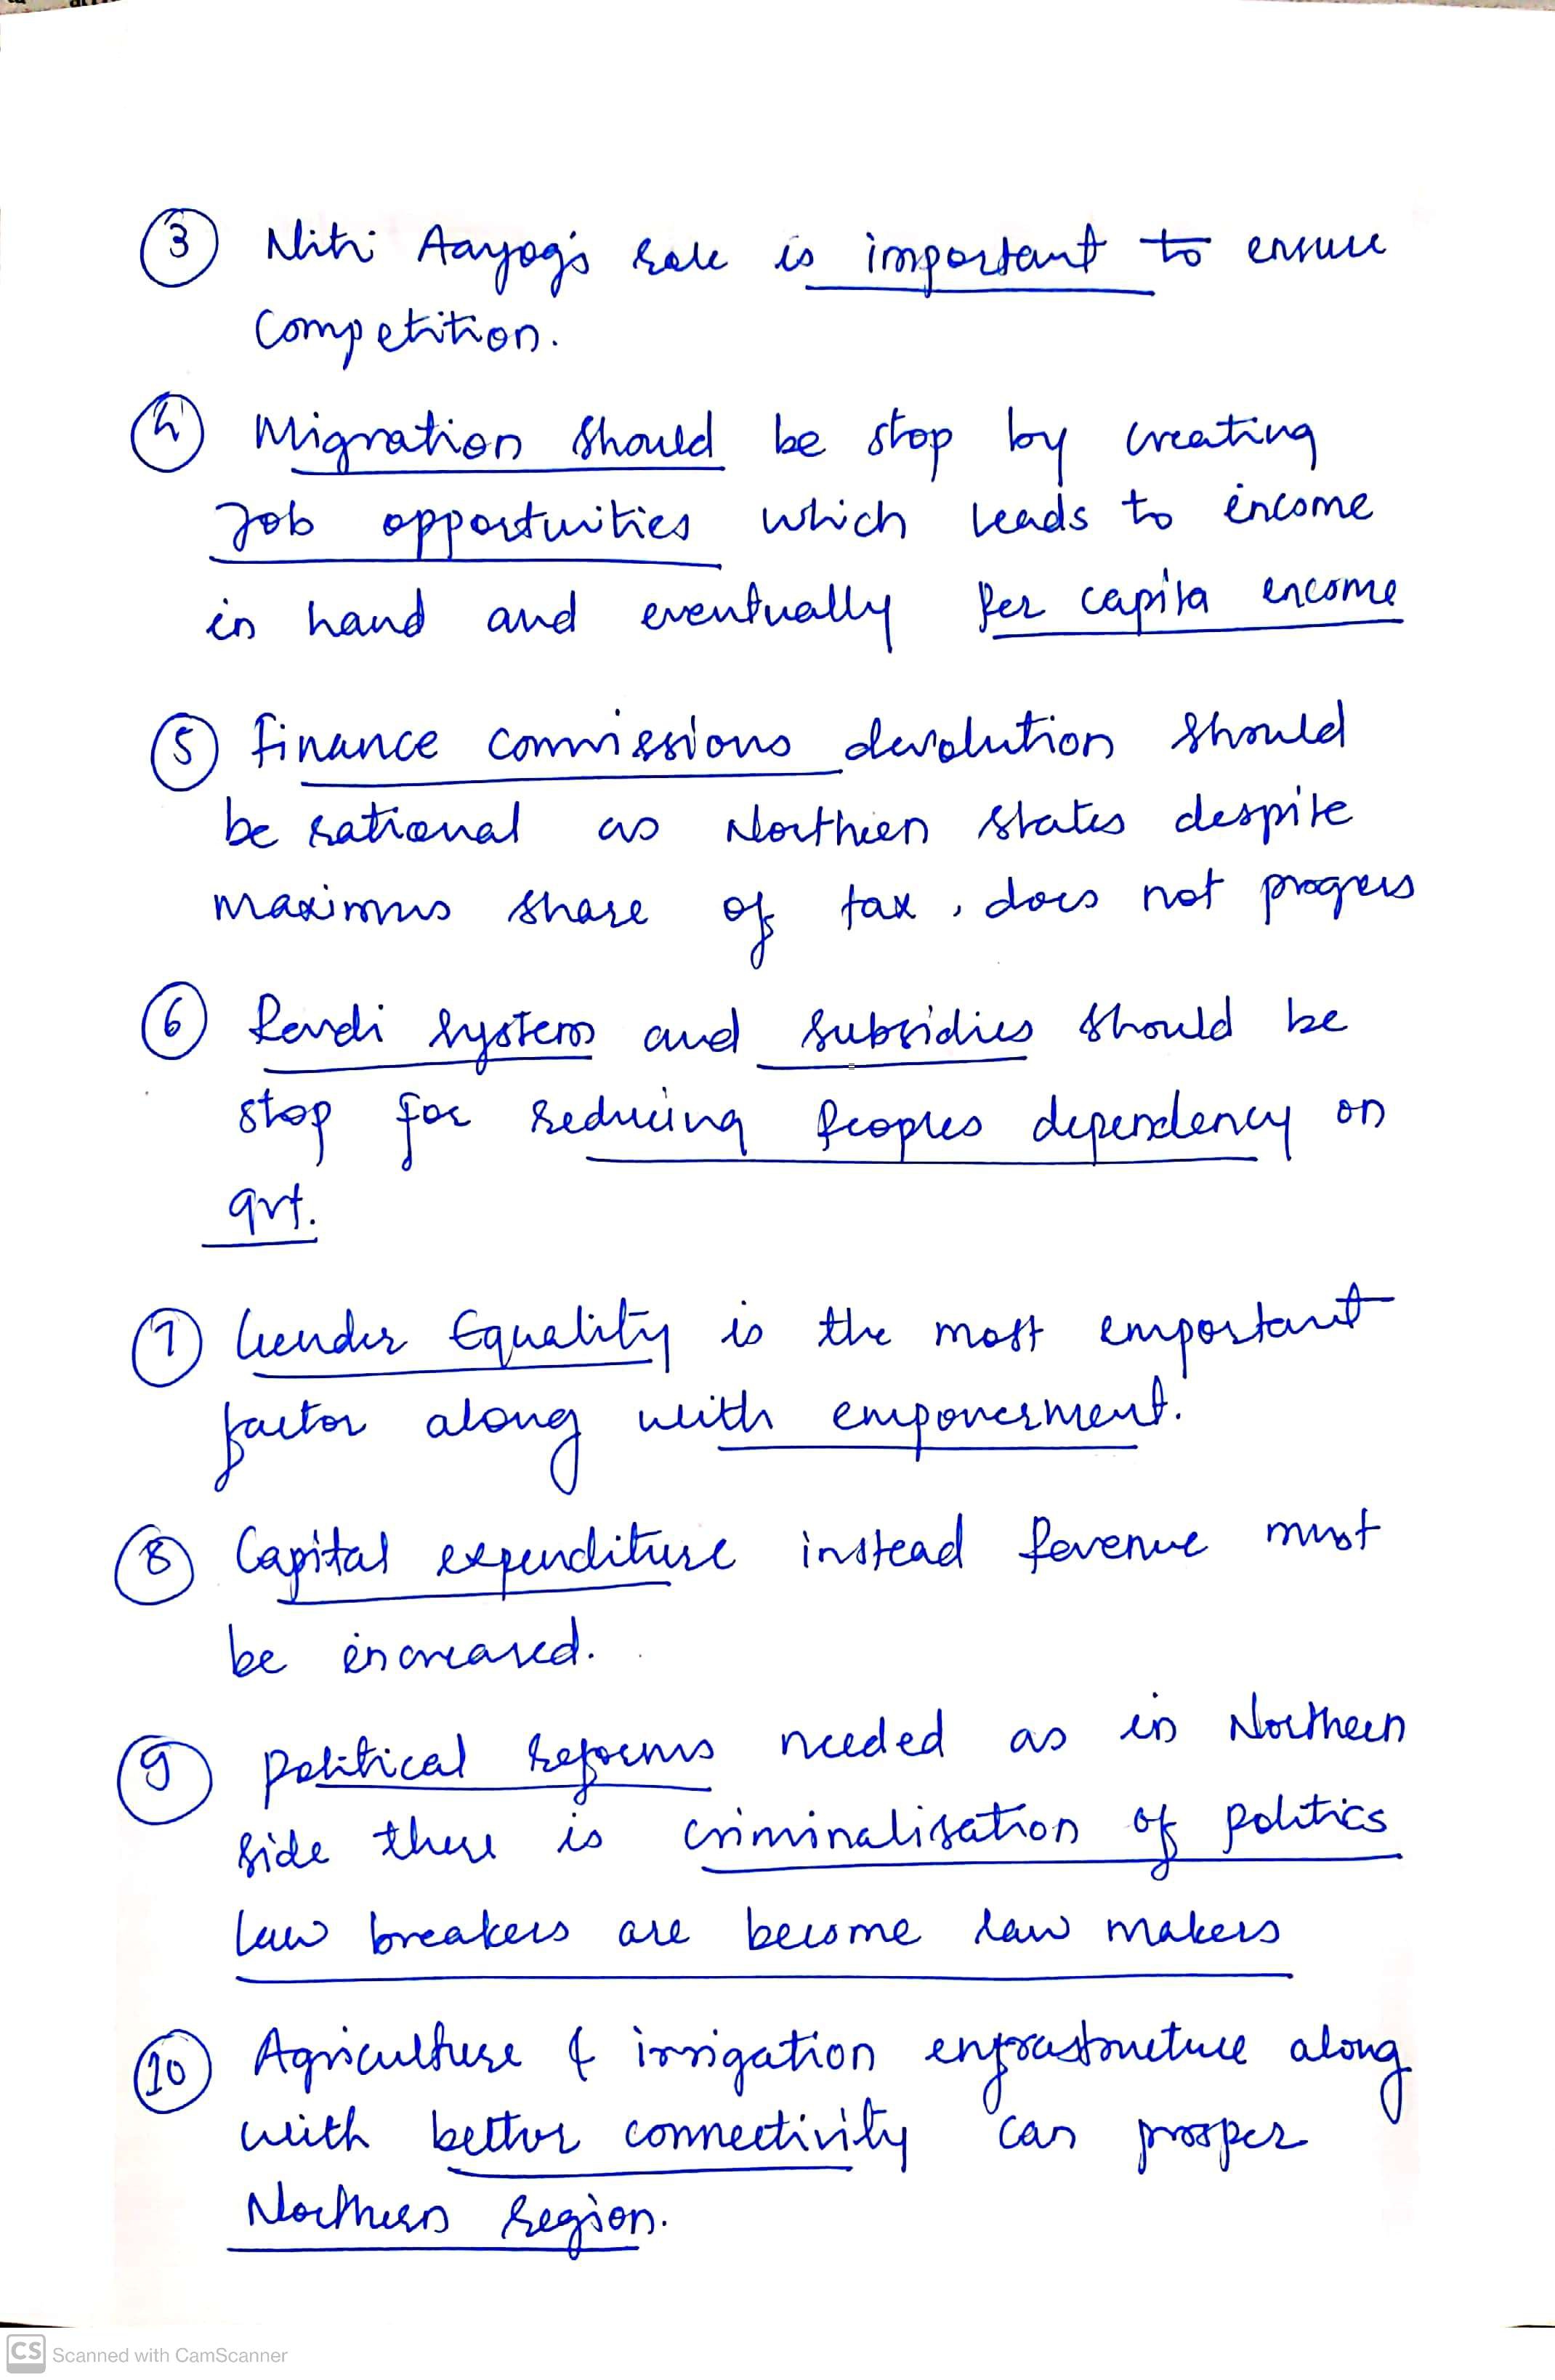 3 Niti Aayog's role is important to ensure
Competition.
4 Migration should be stop by creating
Job opportunities which leads to income
in hand and eventually Per capita income
5 finance commissions devolution should
be rational as Northern states despite
maximum share of tax, does not progress
6 Revdi system and subsidies should be
stop for reducing peoples dependency on
gvt.
7 Gender Equality is the most important
factor along with empowerment.
8 Capital expenditure instead Revenue must
be increased.
9 political reforms needed as in Northern
side there is criminalisation of politics
law breakers are become law makers
10 Agriculture & irrigation infrastructure along
with better connectivity can prosper
Northern region.
CS Scanned with CamScanner